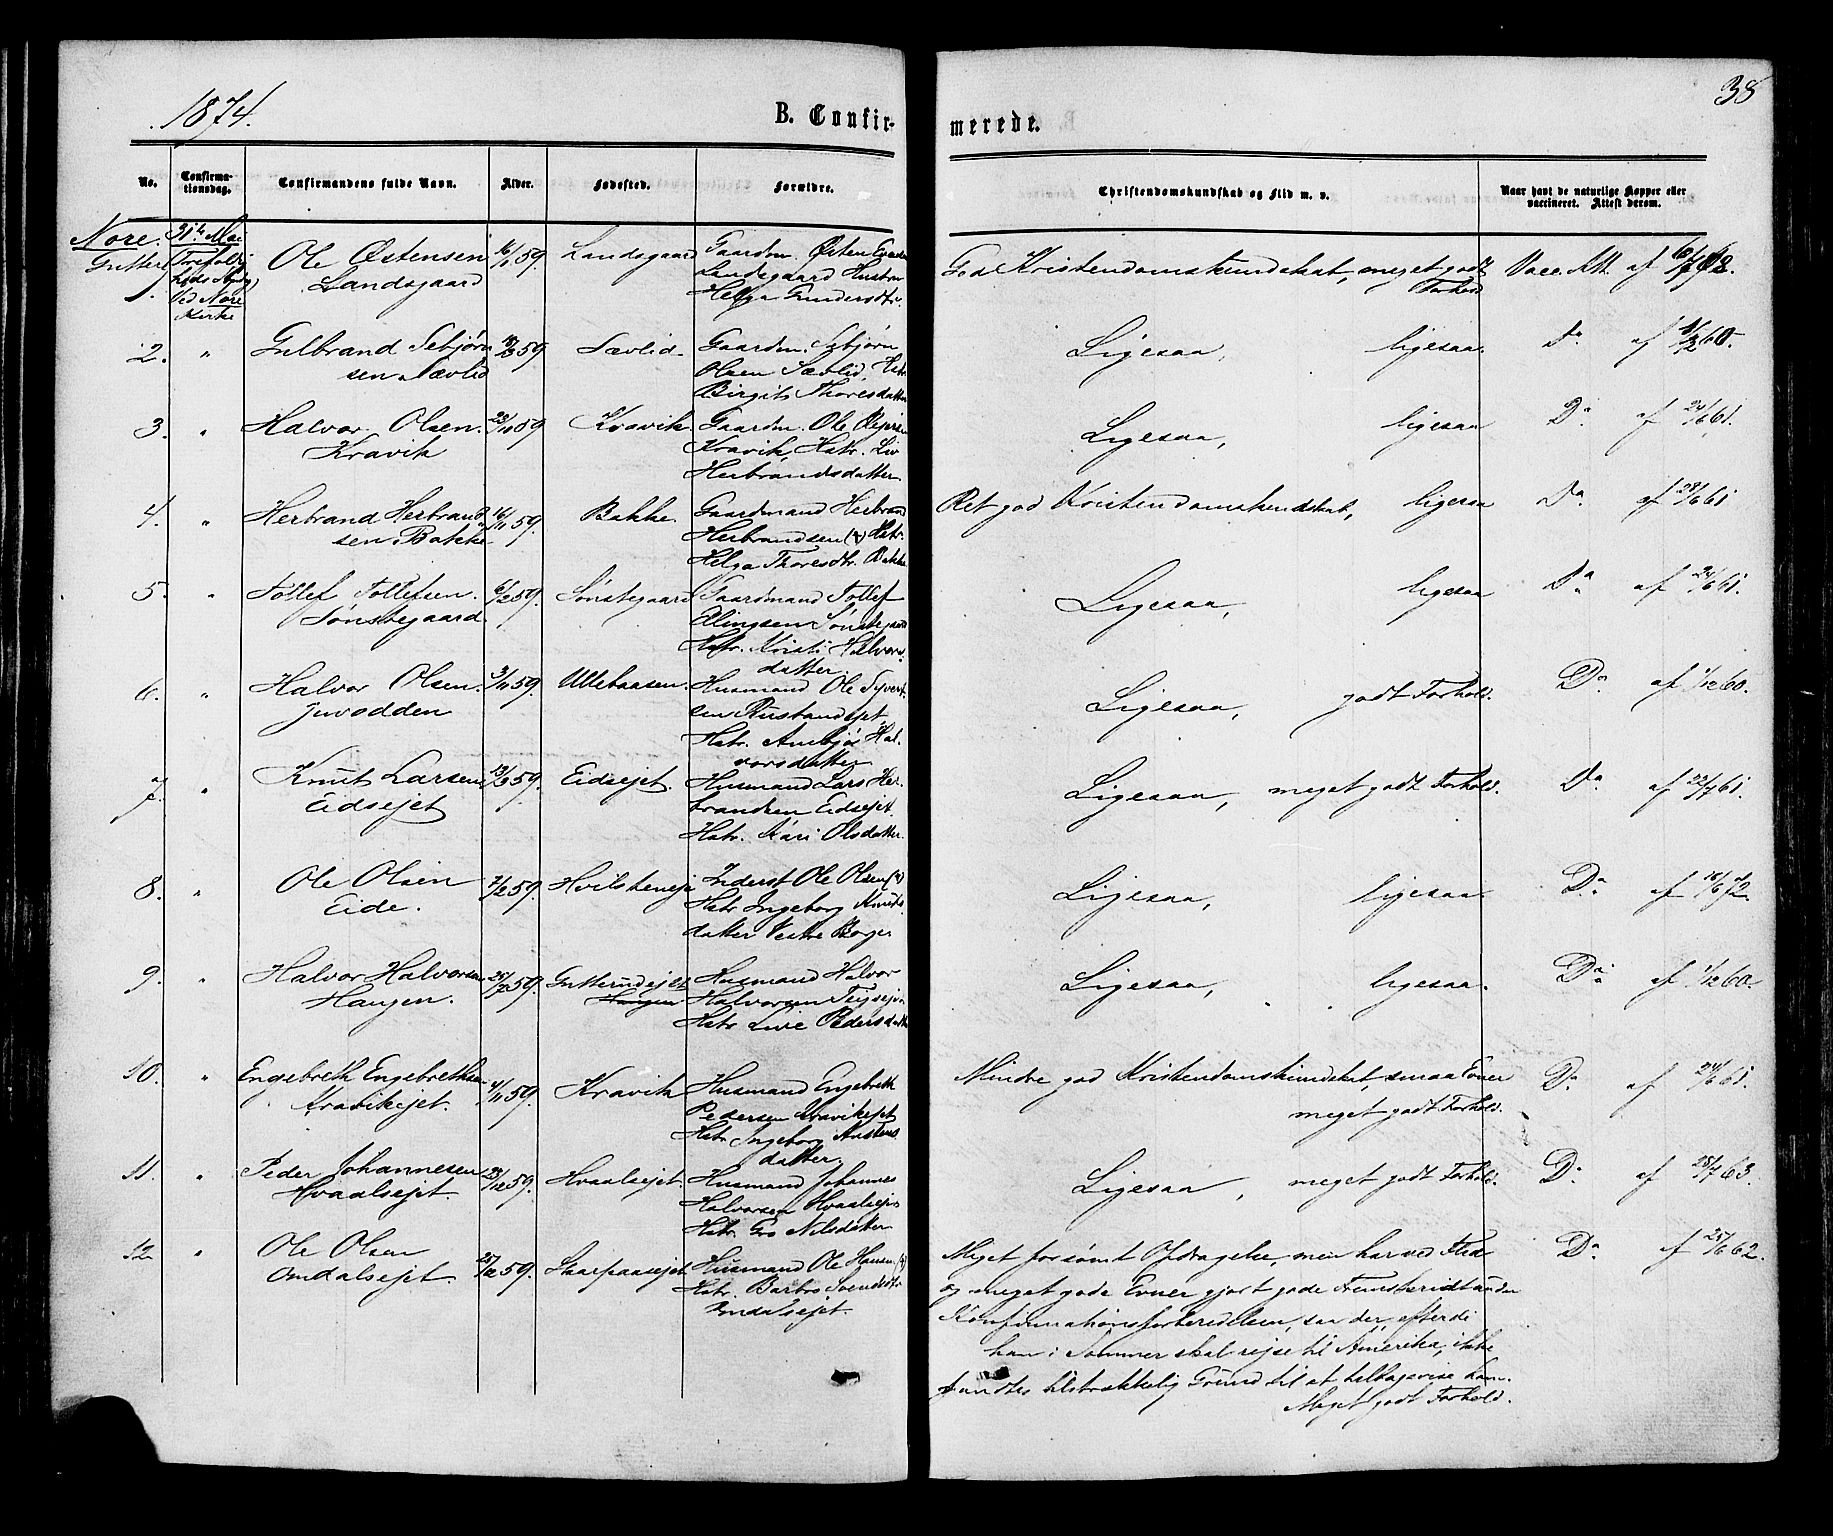 1874.
B. Confir-
merede.
38
No.
Confirma-
tionsdag.
Confirmandens fulde Navn.
Alder.
Fødested.
Forældre.
Christendomskundskab og Flid m. v.
Naar havt de naturlige Kopper eller
vaccineret. Attest derom.
Nore.
Gutter.
31te Mai
ved Nore
Kirke
1. Ole Østensen 59. Landsgaard Gaardm. Østen
Landsgaard Landsgaard Hustru
Helga Gundersdtr.
God Kristendomskundskab, meget godt Vacc. Att. af
Forhold
2. " Gulbrand Sebjørn 59. Sævlid. Gaardm. Sebjørn
sen Sævlid Olsen Sævlid, Hstr.
Birgit Thoresdatter
Ligesaa, ligesaa. Do af 60.
3. " Halvor Olsen 59 Kravik Gaardm. Ole
Kravik Kravik, Hstr. Liv
Herbrandsdatter
Ligesaa, ligesaa Do af 24/6 61.
4. " Herbrand Herbrand 16/11 59. Bakke Gaardmand Herbrand
sen Bakke Herbrandsen (†) Hstr.
Helga Thoresdtr. Bakke
Ret god Kristendomskundskab, ligesaa Do af 61
5. " Tollef Tollefsen 6/2 59. Sønstegaard Gaardmand Tollef
Sønstegaard. Sønstegaard
Hstr. Kristi Halvors
datter
Ligesaa, ligesaa Do af 24/6 61.
6. " Halvor Olsen 3/11 59. Ullebaasen. Husmand Ole Syvert
Juvodden sen Rustandejet
Hstr. Ambjør Hal-
vorsdatter
Ligesaa, godt Forhold. Do af 1/12 60.
7. " Knut Larsen 13/3 59. Eidsejet. Husmand Lars Her-
Eidsejet brandsen Eidsejet.
Hstr. Kari Olsdatter
Ligesaa, meget godt Forhold. Do af 61.
8. " Ole Olsen 59. Inderst Ole Olsen (†)
Eide. Hstr Ingeborg Knuds
datter Vestre
Ligesaa, ligesaa. Do af
9. " Halvor Halvorsen 59. Gutterudejet Husmand Halvor
Haugen. Haugen Halvorsen
Hstr Live Pedersdatter
Ligesaa, ligesaa. Do af 1/12 60.
10. " Engebreth Engebrethsen 4/11 59. Kravik Husmand Engebreth
Kravikejet. Pedersen Kravikejet
Hstr Ingeborg Austens
datter
Mindre god Kristendomskundskab, smaa Evner Do af 24/6 61.
meget godt Forhold.
11. " Peder Johannesen 59. Hvaalsejet. Husmand Johannes
Hvaalsejet. Halvorsen Hvaalsejet
Hstr. Gro Nilsdatter
Ligesaa, meget godt Forhold. Do af 63.
12 " Ole Olsen 59. Skarpaasejet Husmand Ole Hansen (†)
Omdalsejet. Hstr. Barbro Svendsdtr
Omdalsejet.
Meget forsømt Opdragelse, men har ved Flid Do af 25/6 62.
og meget gode Evner gjort gode Fremskridt under
Konfirmationsforberedelsen, saa der, efterdi
han i Sommer skal rejse til Amerika, ikke
fandtes tilstrækkelig Grund til at tilbagevise ham.
Meget godt Forhold.